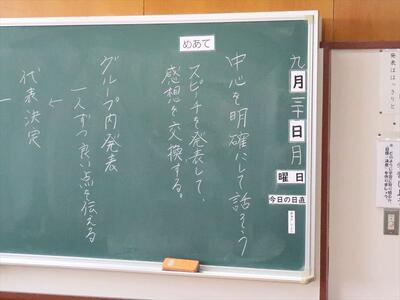 九月三十日月曜日
今日の日直
めあて
中心を明確にして話そう
スピーチを発表して、
感想を交換する。
グループ内発表
一人ずつ良い点を伝える
↓
代表決定
発表ははっきりと